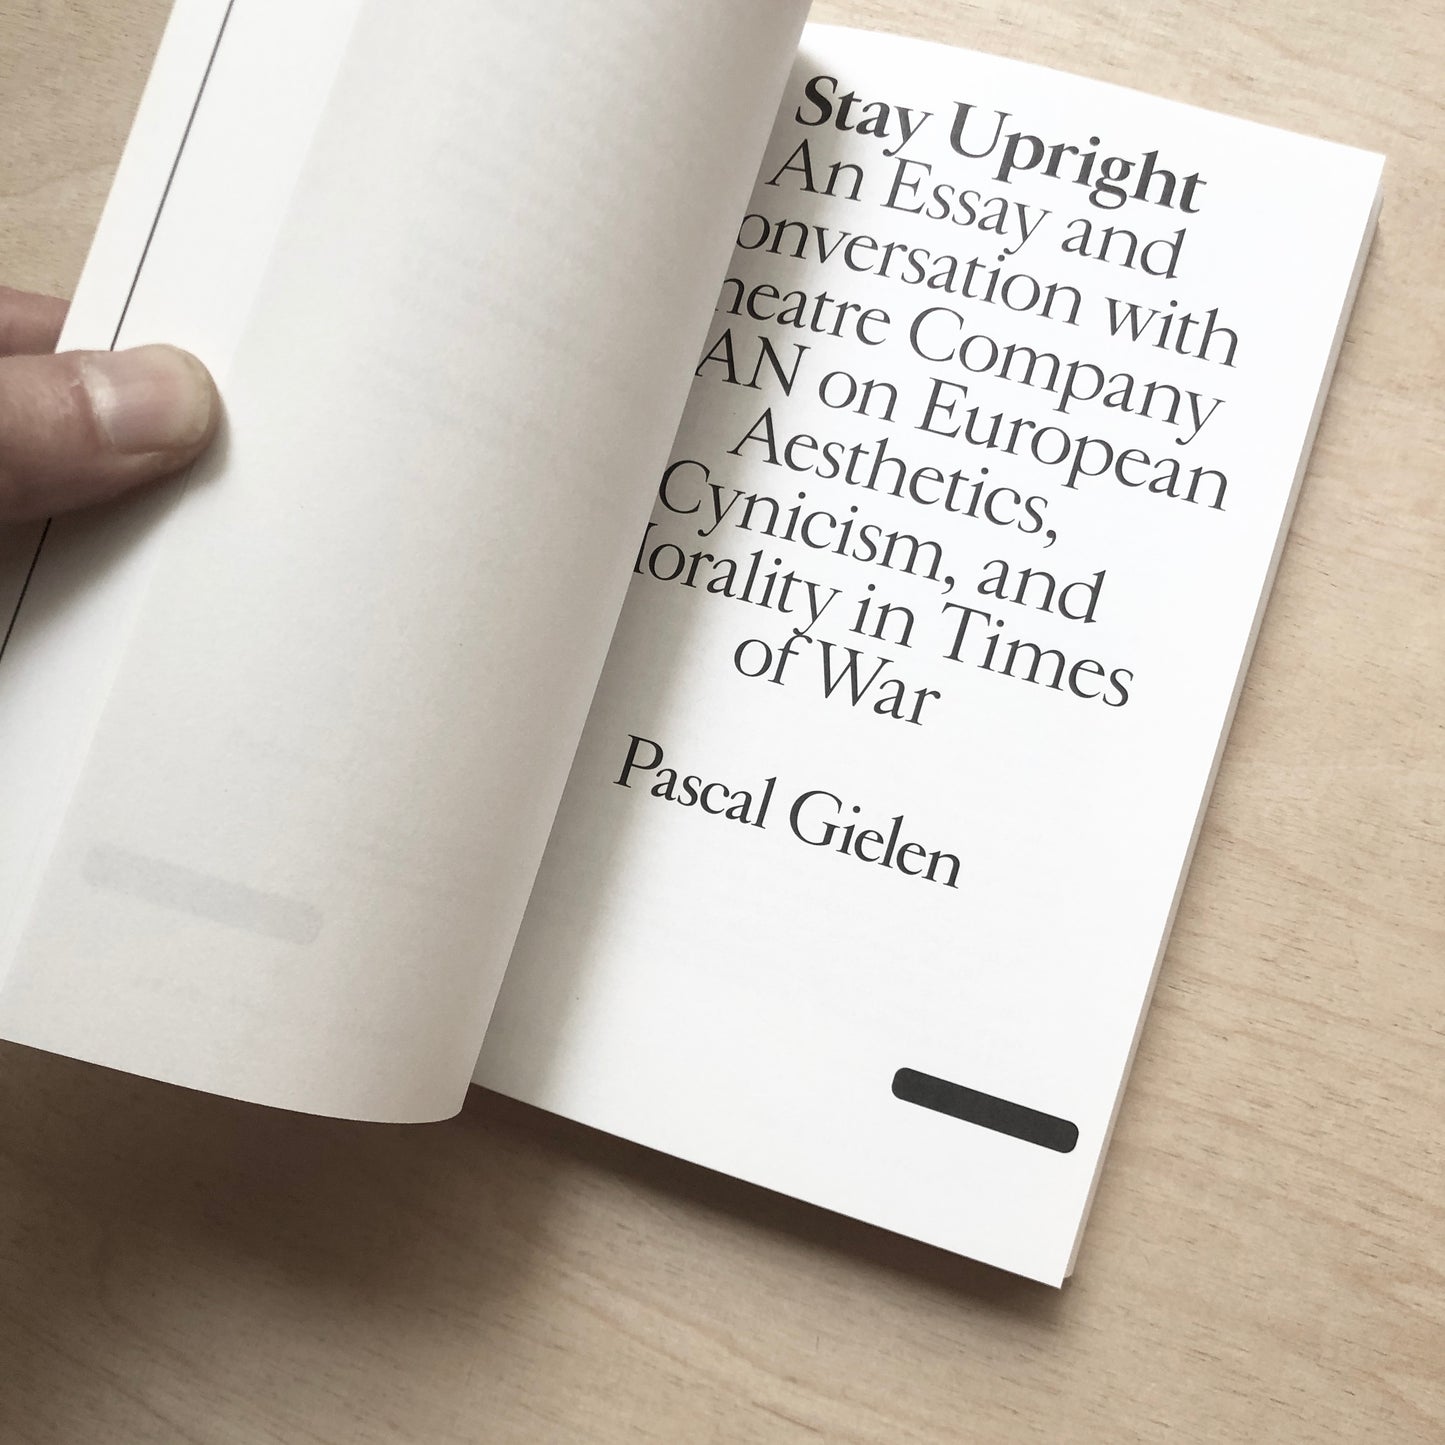 Stay Upright
An Essay and
onversation with
heatre Company
AN on European
Aesthetics,
Cynicism, and
lorality in Times
of War
Pascal Gielen